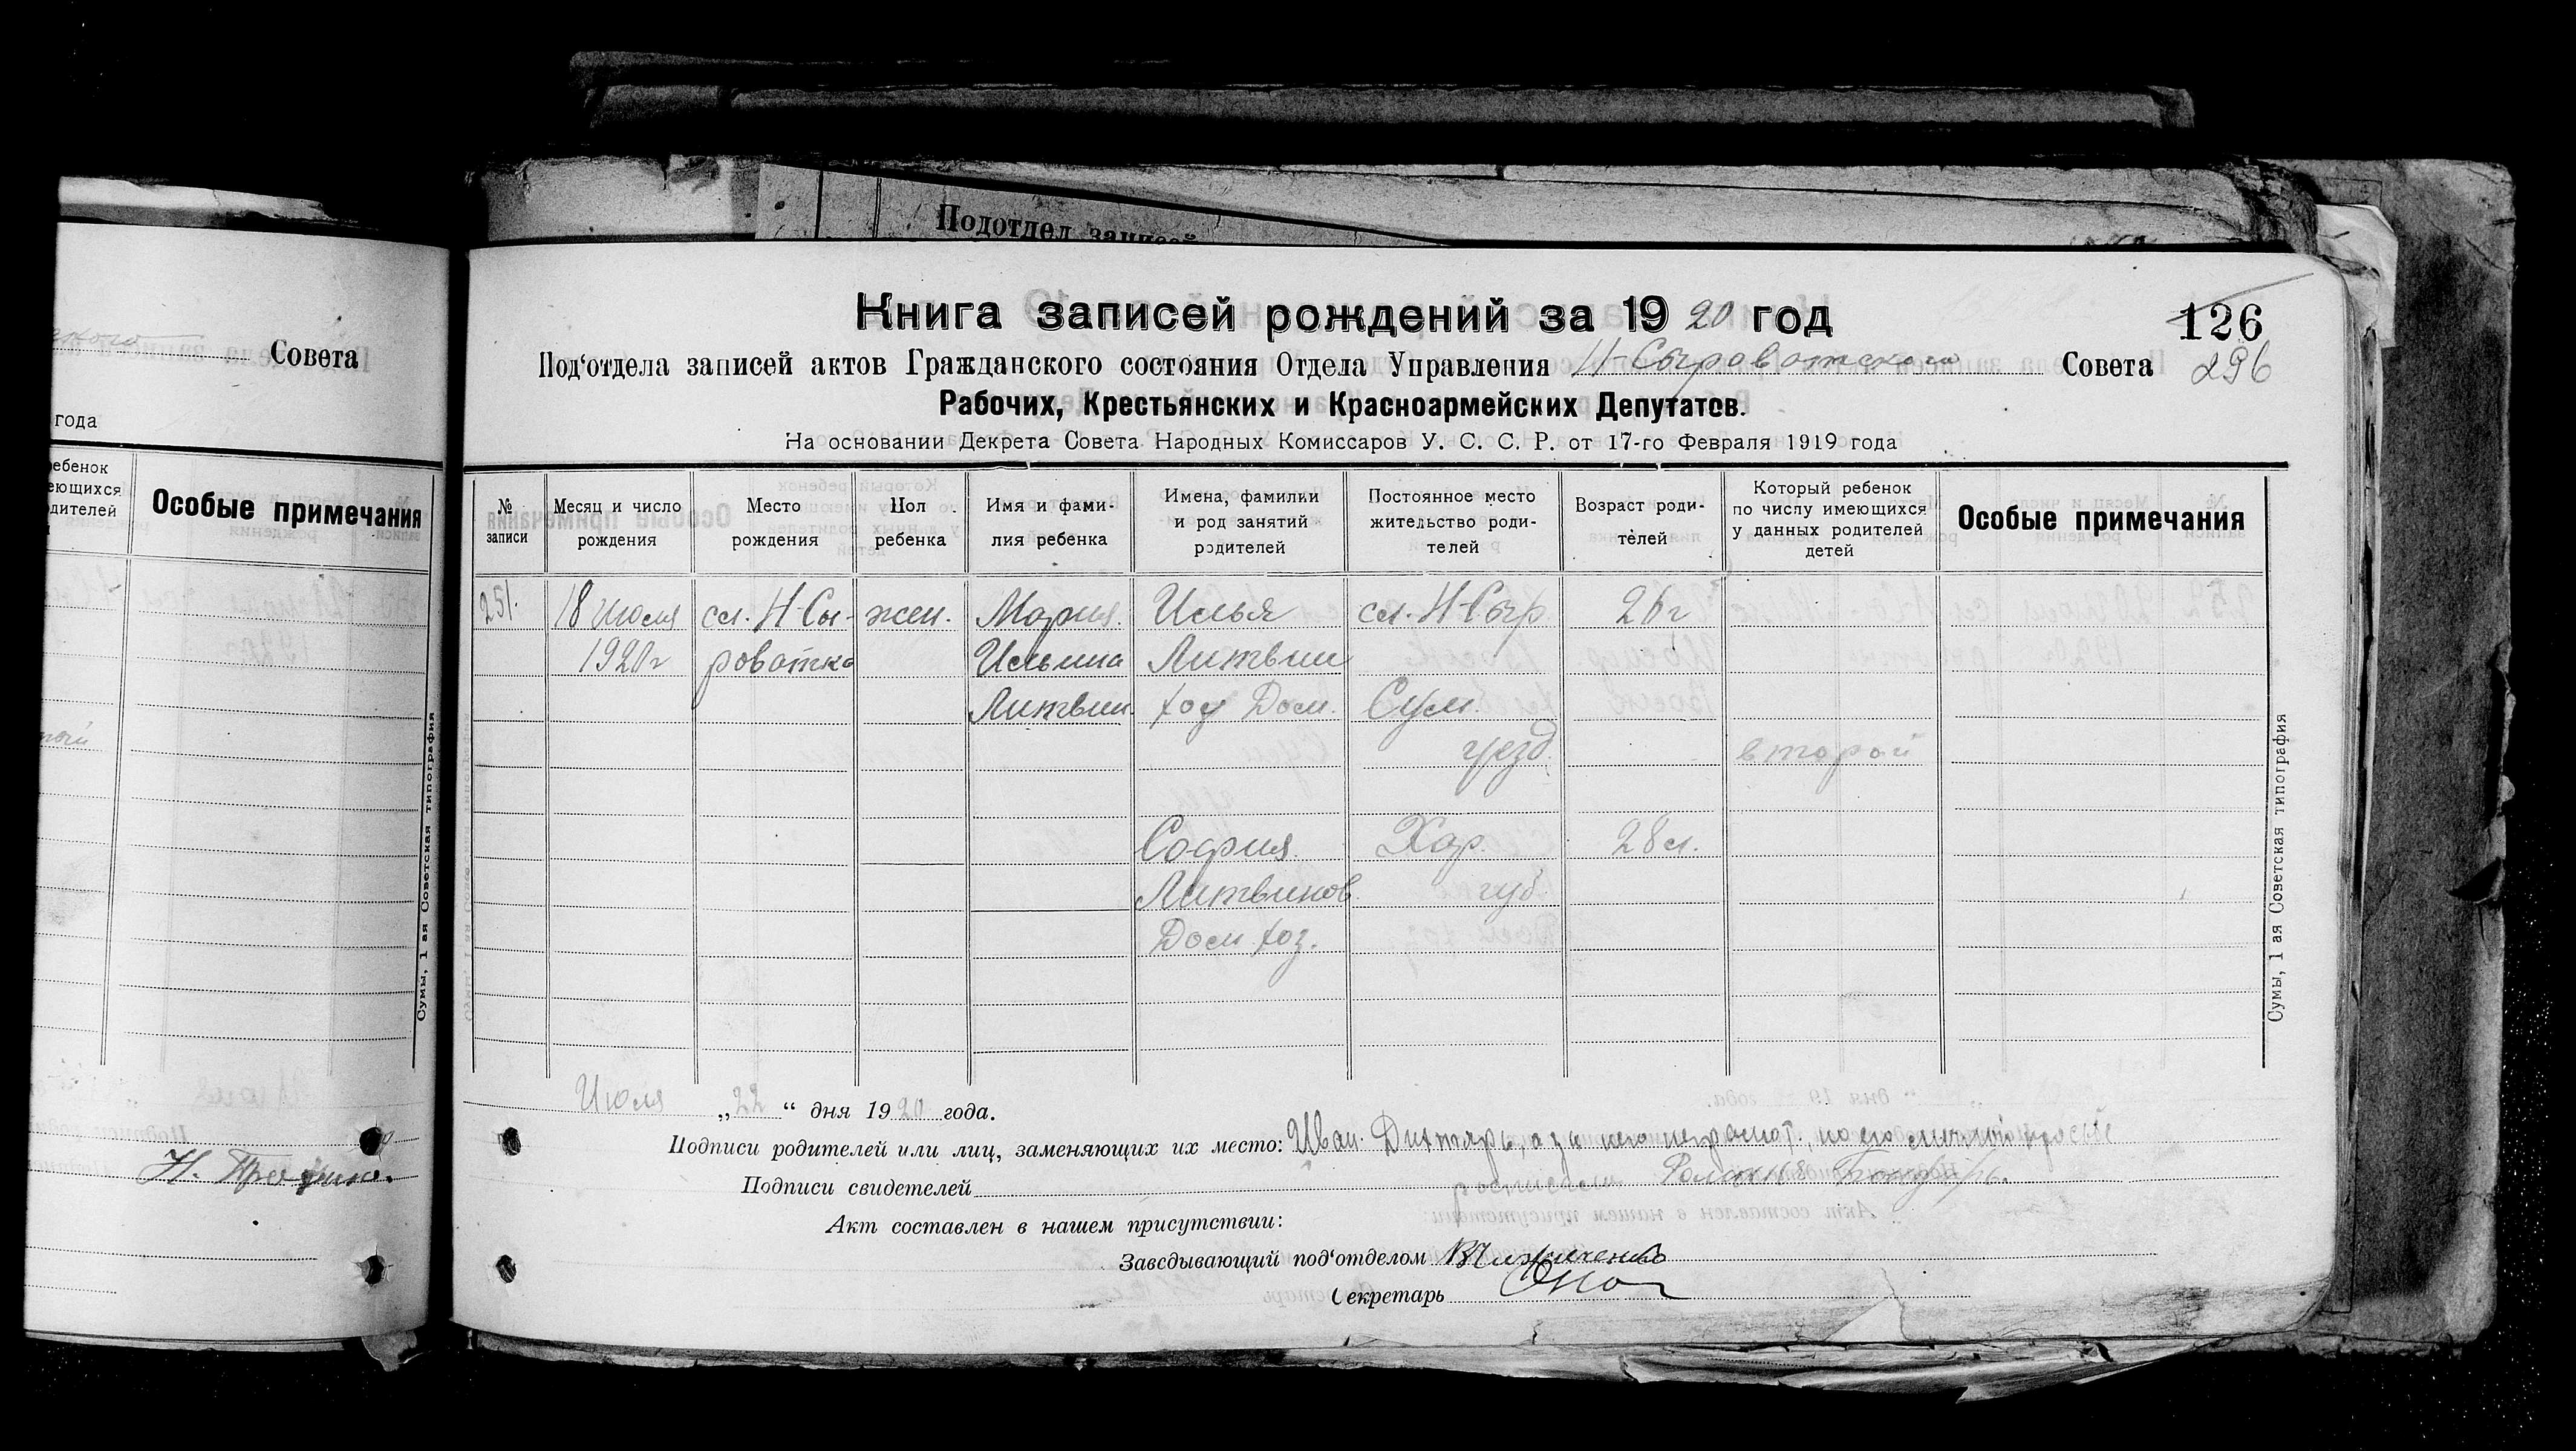 Подотдел записей
Совета
года
Особые примечания
Н. Трофим.
Сумы, 1 ая Советская типография
Книга записей рождений за 1920 год
126
Под‘отдела записей актов Гражданского состояния Отдела Управления Н-Сыроватского Совета
296
Рабочих, Крестьянских и Красноармейских Депутатов.
На основании Декрета Совета Народных Комиссаров У. С. С. Р. от 17-го Февраля 1919 года
№
записи
Месяц и число
рождения
Место
рождения
Пол
ребенка
Имя и фами-
лия ребенка
Имена, фамилии
и род занятий
родителей
Постоянное место
жительство роди-
телей
Возраст роди-
телей
Который ребенок
по числу имеющихся
у данных родителей
детей
Особые примечания
251.
18 Июля
1920 г
сл. Н-Сы-
роватка
жен.
Мария.
Ильина
Литвин.
Илья
Литвин
хоз Дом.
София.
Литвинов
Дом хоз.
сл. Н-Сыр
Сум.
уезд.
Хар.
губ.
26 г
28 л.
второй
Сумы, 1 ая Советская типография
Июля „22“ дня 1920 года.
Подписи родителей или лиц, заменяющих их место: Иван Дихтярь, а за него неграмот. по его личной просьбе
Подписи свидетелей
росписался
Акт составлен в нашем присутствии:
Заведывающий под‘отделом
Секретарь